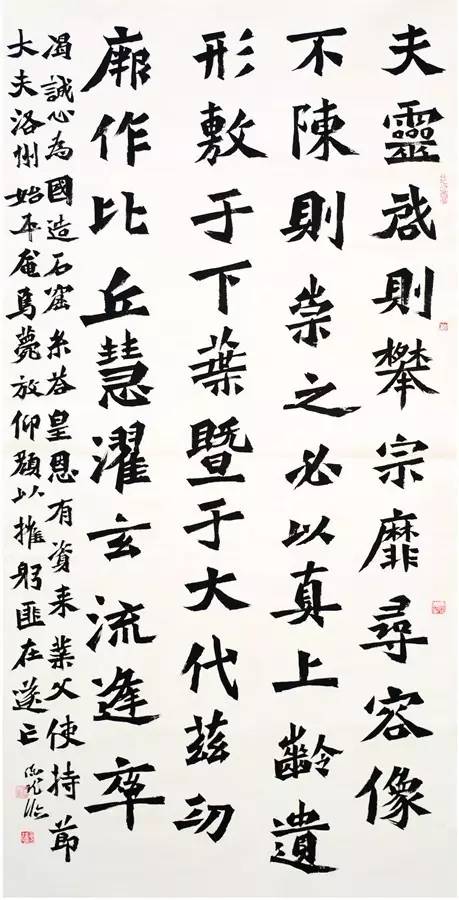 夫靈啓則攀宗靡尋容像
不陳則崇之必以真上齡遺
形敷于下葉暨于大代茲功
厥作比丘慧濯玄流逢率
渴誠心為國造石窟糸荅皇恩有資来業父使持節
大夫洛州始平奄焉薨放仰顏以摧躬匪在遂亡
臨